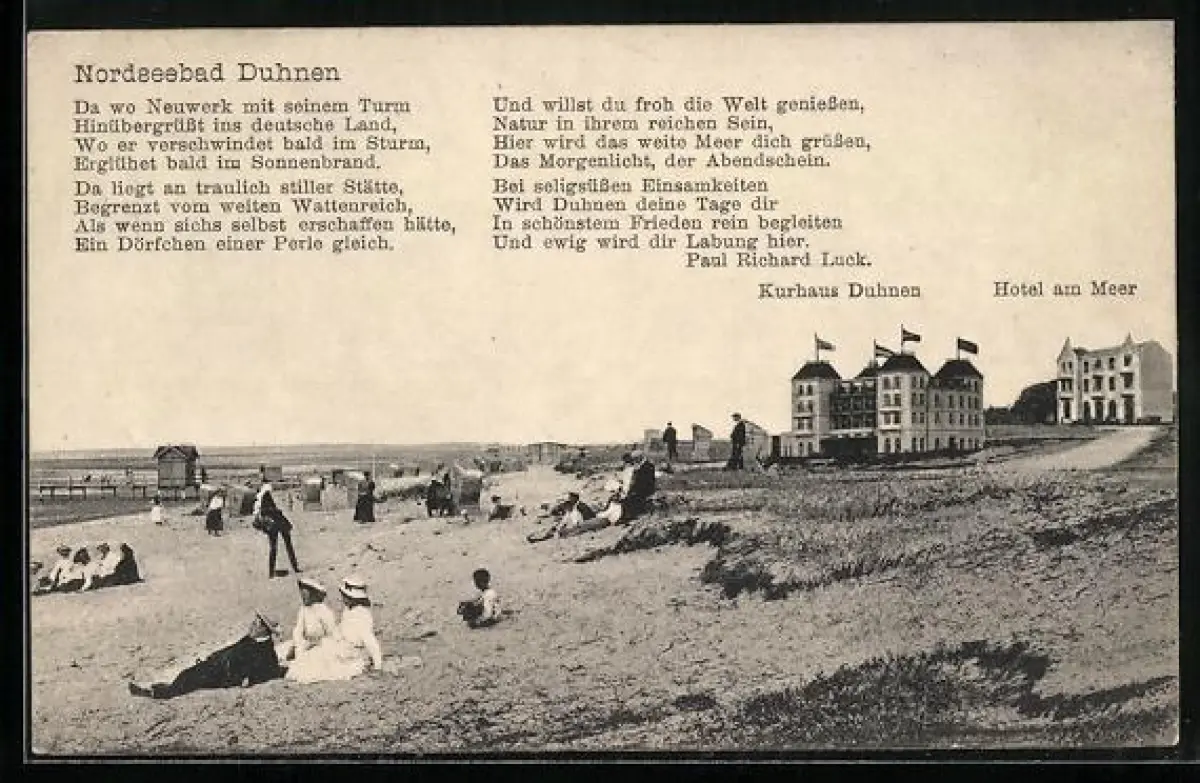 Nordseebad Duhnen
Da wo Neuwerk mit seinem Turm
Hinübergrüßt ins deutsche Land,
Wo er verschwindet bald im Sturm,
Erglühet bald im Sonnenbrand.
Da liegt an traulich stiller Stätte,
Begrenzt vom weiten Wattenreich,
Als wenn sichs selbst erschaffen hätte,
Ein Dörfchen einer Perle gleich.
Und willst du froh die Welt genießen,
Natur in ihrem reichen Sein,
Hier wird das weite Meer dich grüßen,
Das Morgenlicht, der Abendschein.
Bei seligsüßen Einsamkeiten
Wird Duhnen deine Tage dir
In schönstem Frieden rein begleiten
Und ewig wird dir Labung hier.
Paul Richard Luck.
Kurhaus Duhnen
Hotel am Meer